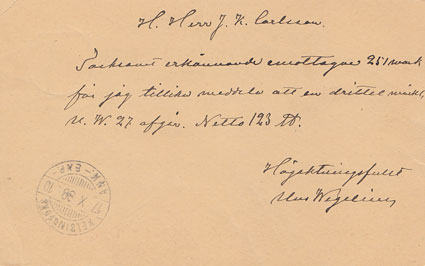 H. Herr J. K. Carlsson.
Tacksamt erkännande emottagne 251 mark
får jag tillika meddela att en drittel märkt,
N. W. 27 afgår. Netto 123 ℔.
Högaktningsfullt
Wegelius
HELSINGFORS
ANK-EXP
17 X 98
10